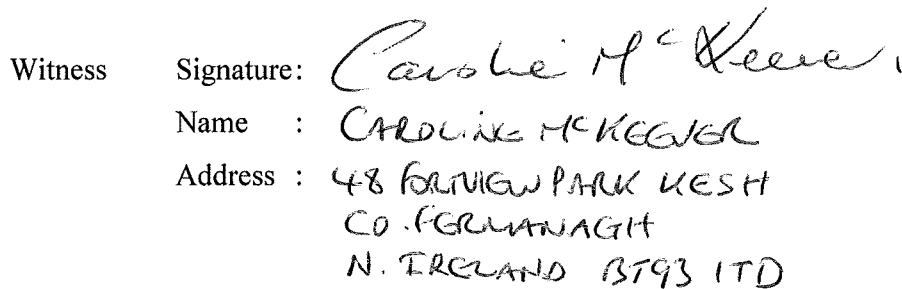 Witness Signature: Caroline McKeever.
Name : CAROLINE McKEEVER
Address : 48 FORTVIEW PARK KESH
CO. FERMANAGH
N. IRELAND BT93 1TD